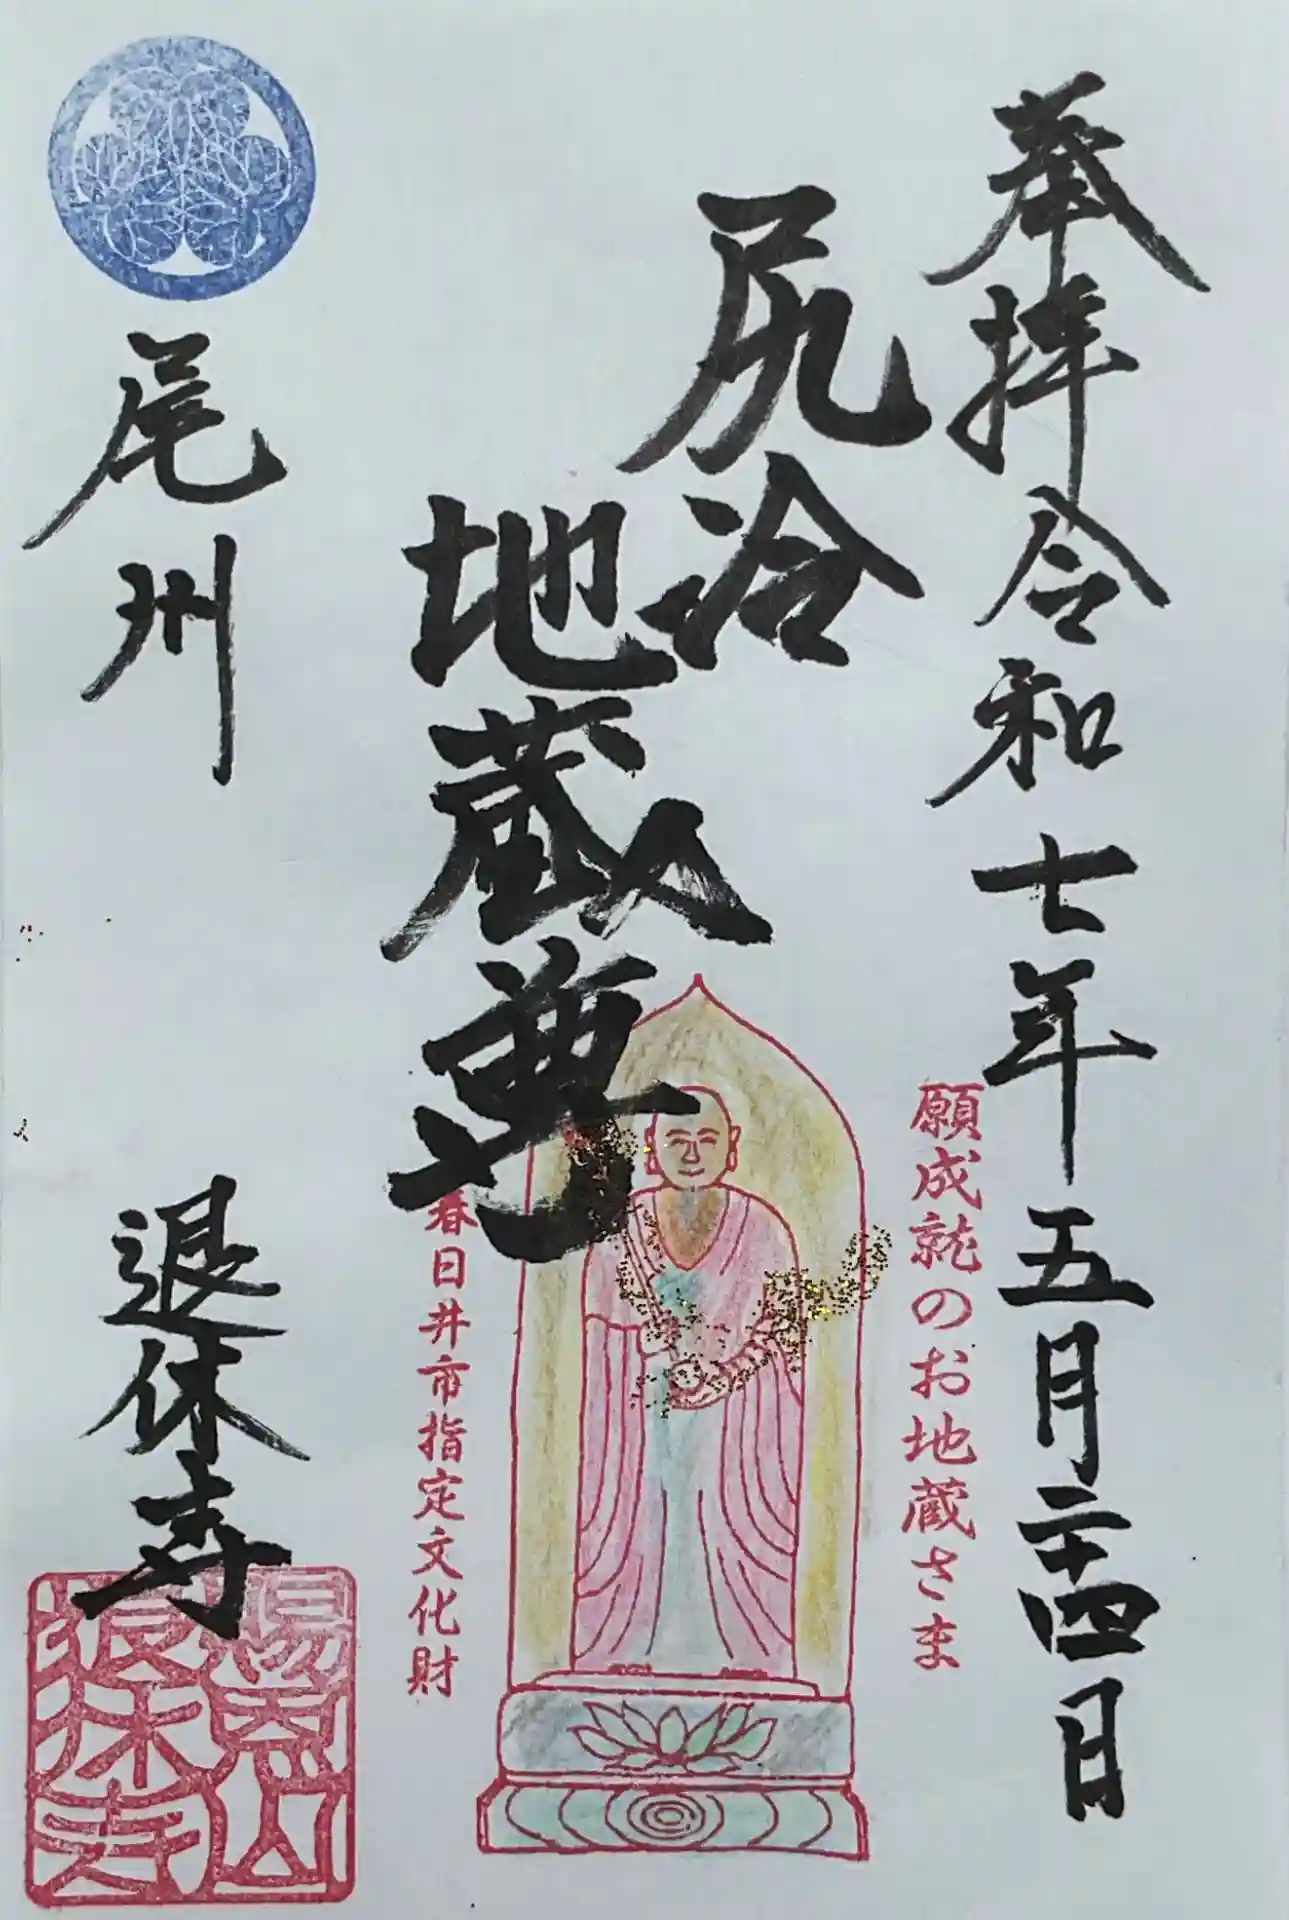 奉拝 令和七年五月二十四日
願成就のお地蔵さま
尻冷
地蔵尊
春日井市指定文化財
尾州 退休寺